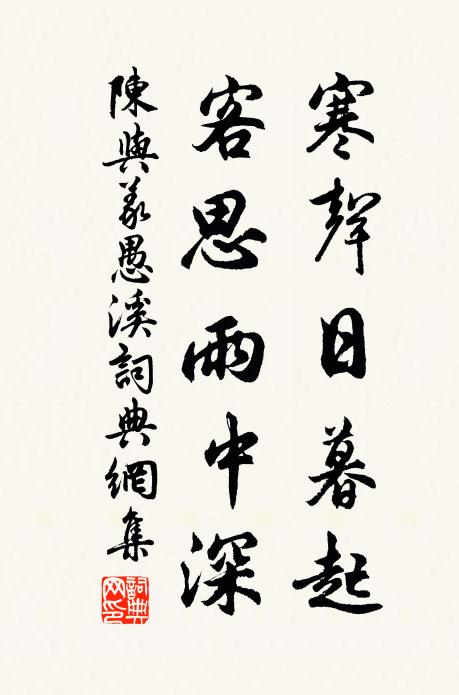 寒聲日暮起
客思雨中深
陳與義愚溪詞典網集
詞典網印